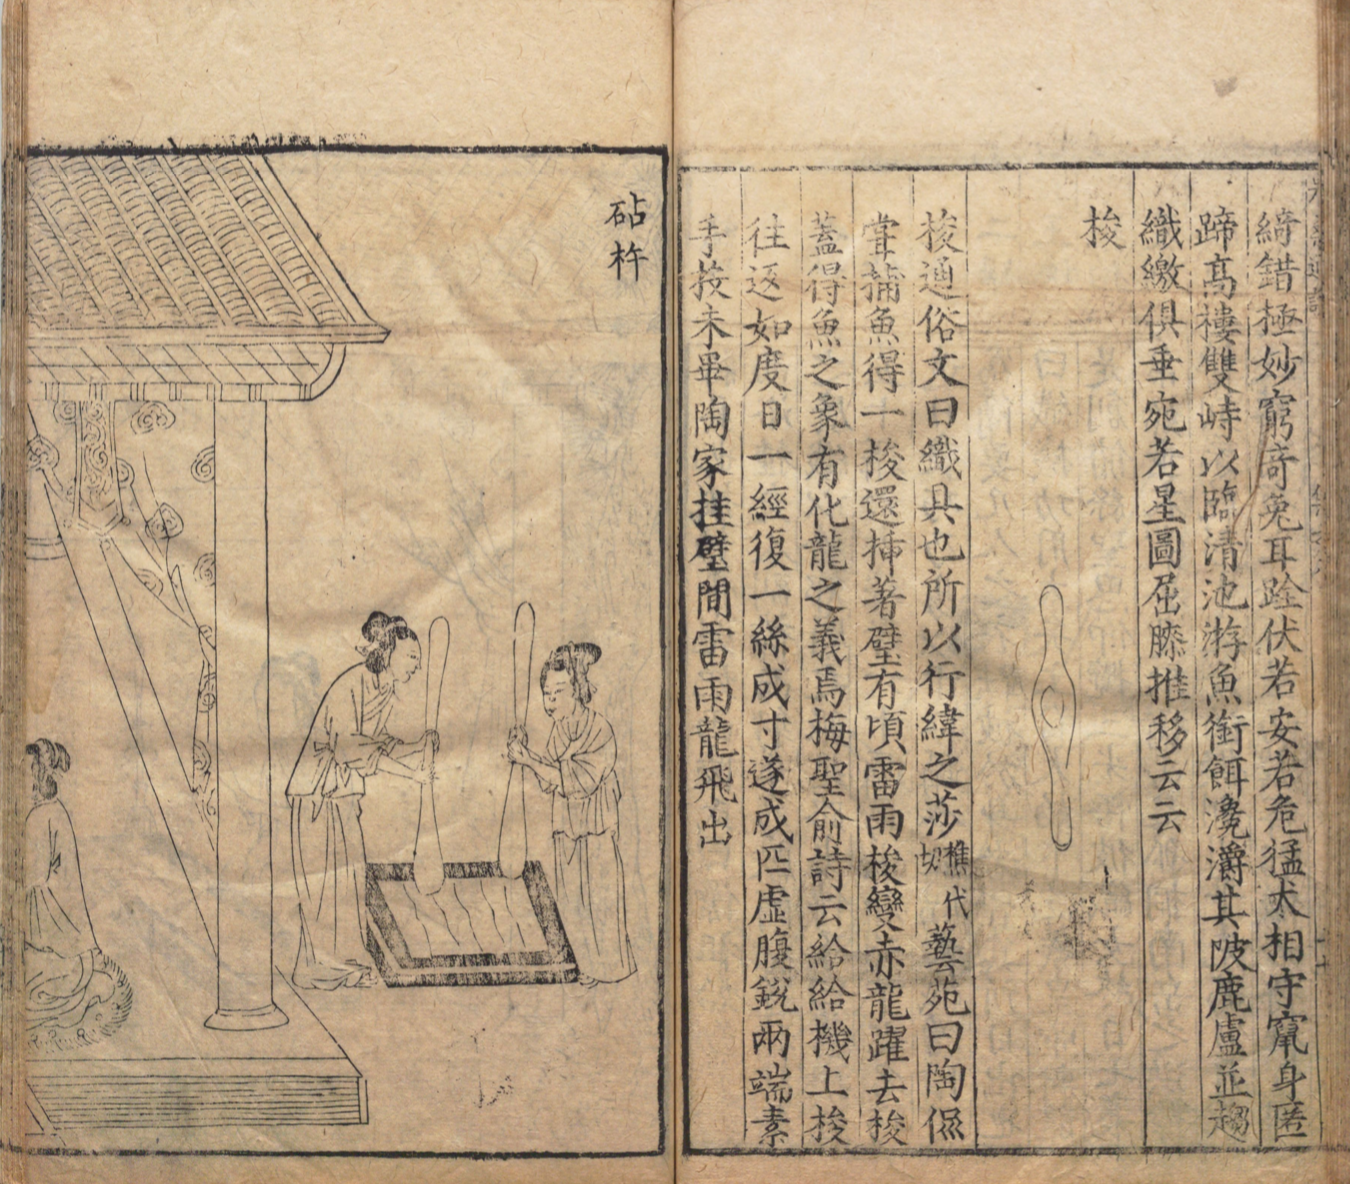 綺錯極妙窮奇兔耳跧伏若安若危猛犬相守竄身匿
蹄高樓雙峙以臨清池游魚銜餌瀺灂其陂鹿盧並趨
織繳俱垂宛若星圖屈膝推移云云
梭
梭通俗文曰織具也所以行緯之莎樵代切藝苑曰陶侃
甞捕魚得一梭還揷著壁有頃雷雨梭變赤龍躍去梭
蓋得魚之象有化龍之義焉梅聖俞詩云給給機上梭
往返如度日一經復一絲成寸遂成匹虛腹銳兩端素
手投未畢陶家挂壁間雷雨龍飛出
砧杵